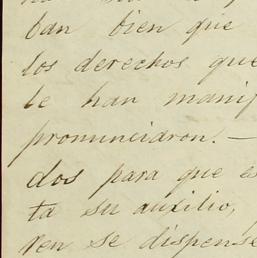 ban bien que
los derechos que
le han manif
pronunciaron. —
dos para que es
ta su auxilio,
ren se dispense